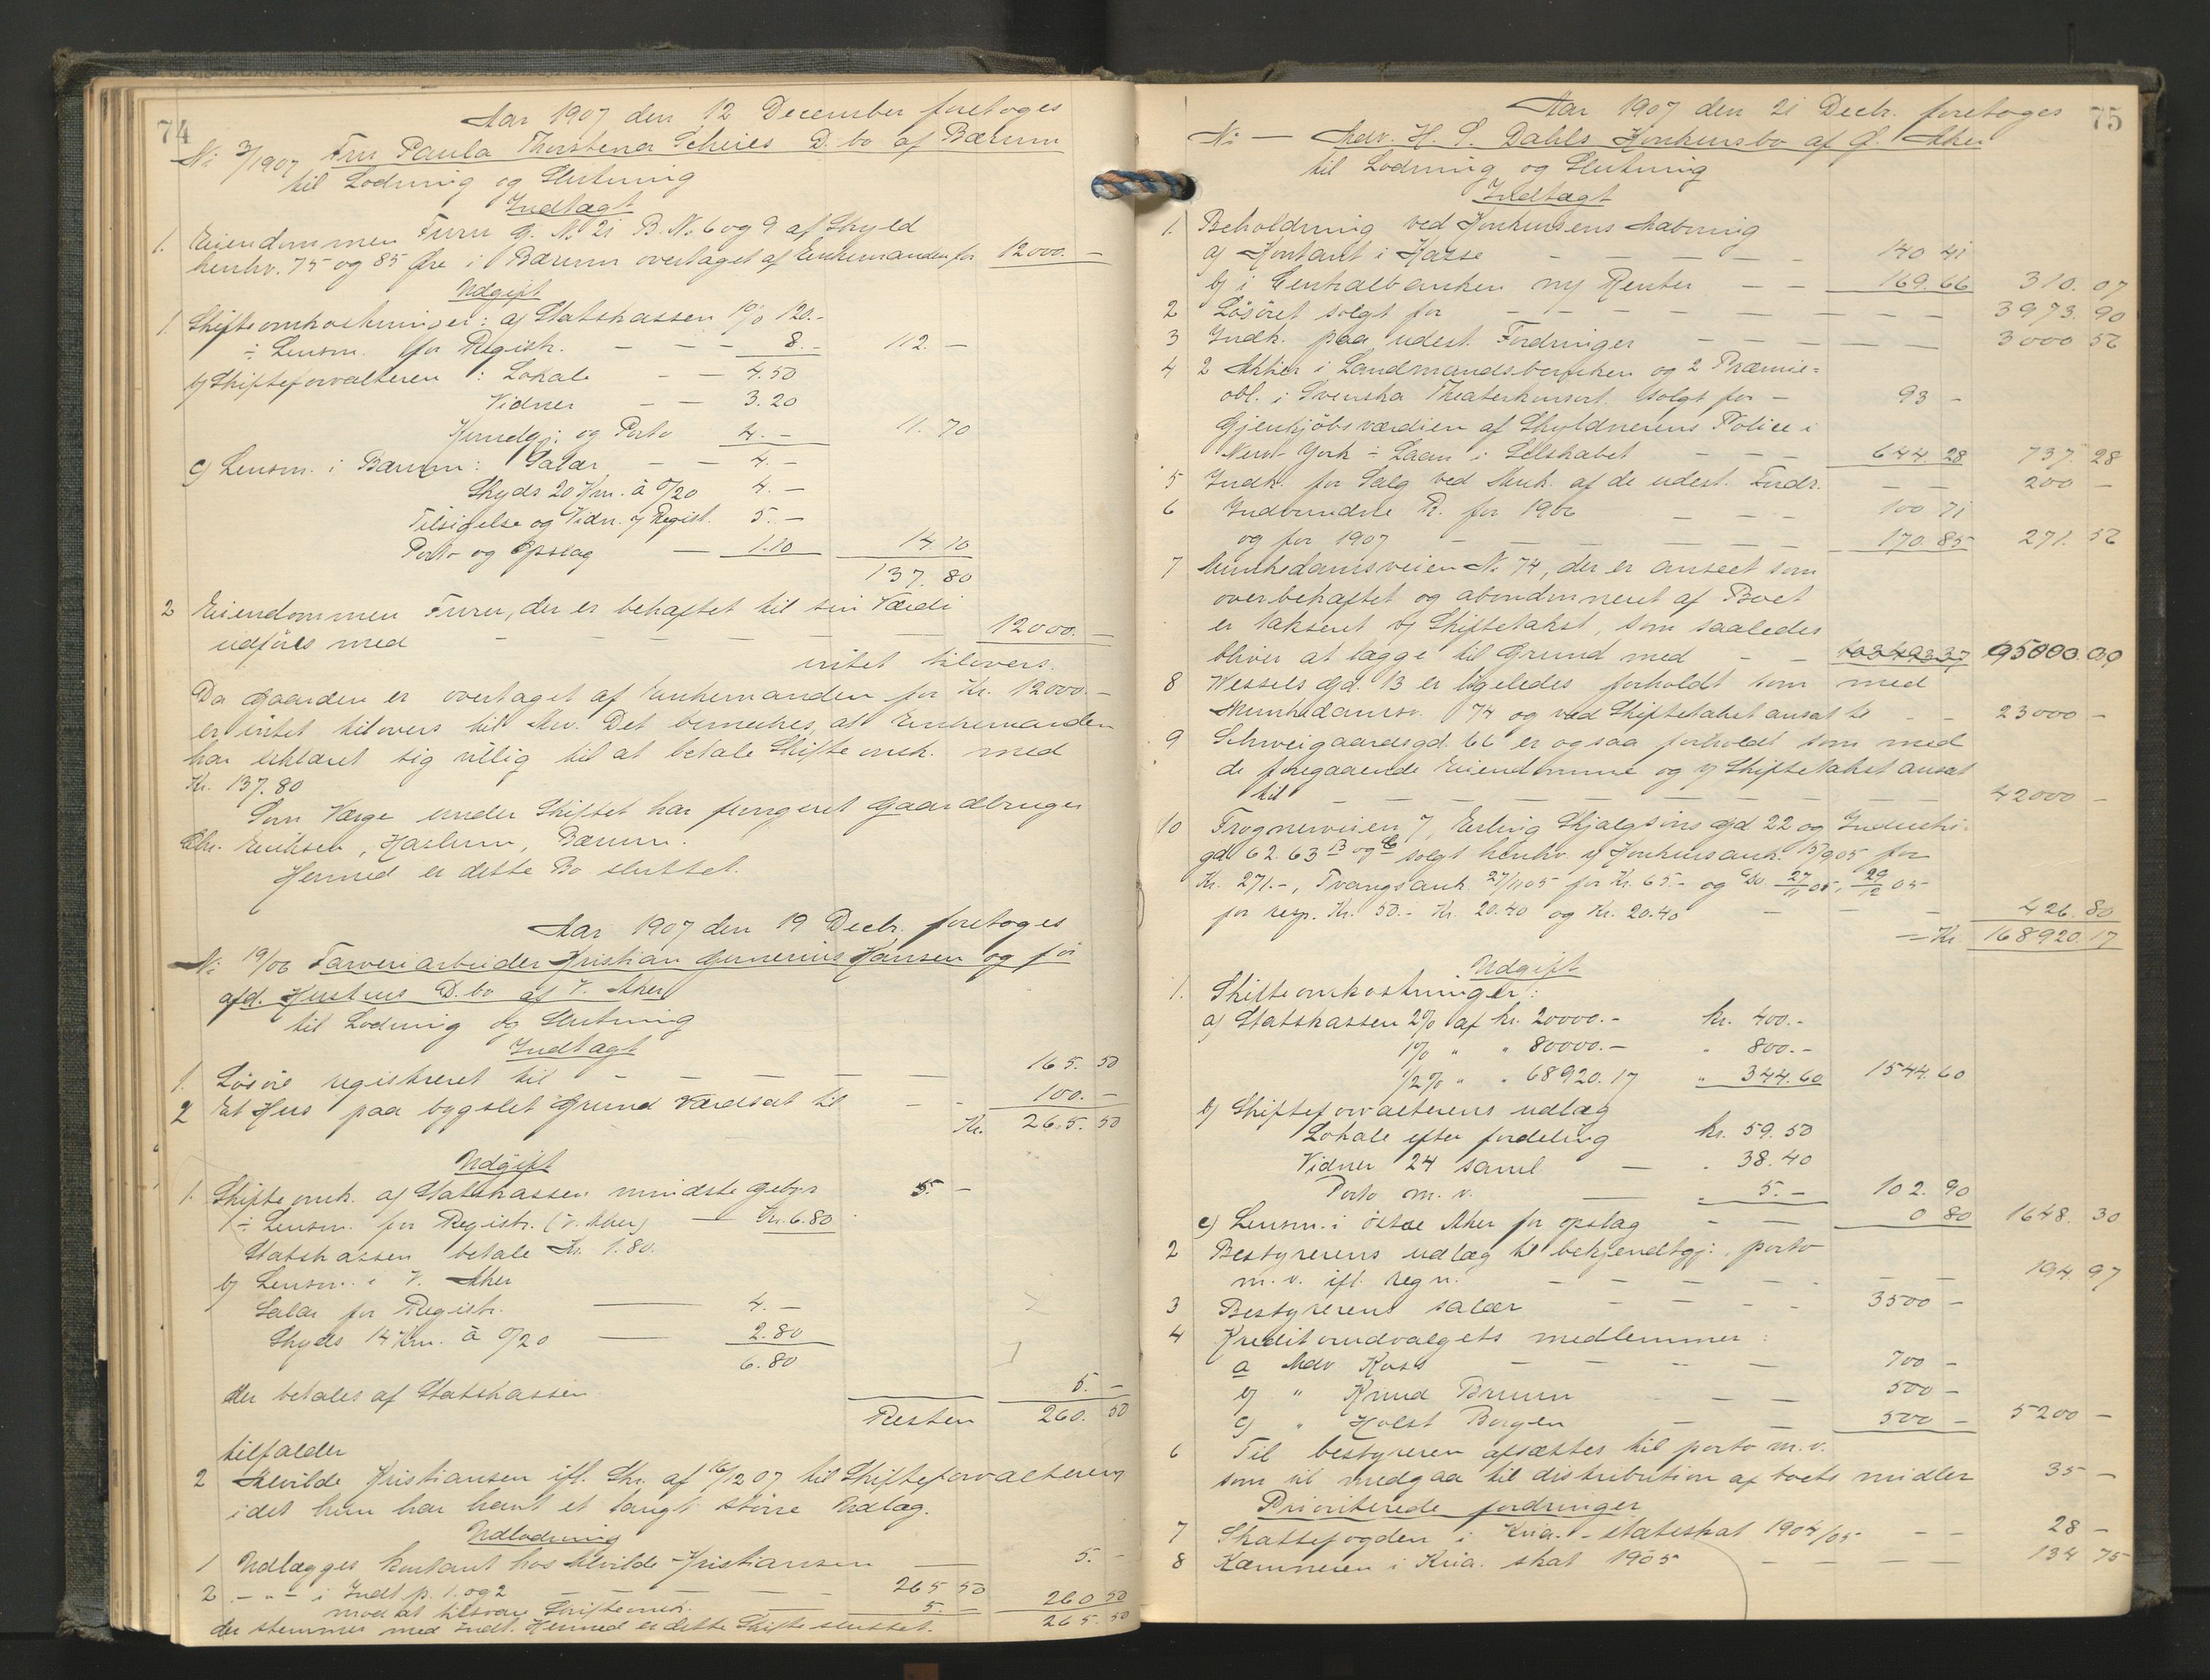 74
Aar 1907 den 12 December foretoges
No 3/1907 Fru Paula Thorstena Scheies D. bo af Bærum
til Lodning og Slutning
Indtægt
1. Eiendommen Furu G. No 21 B. No 6 og 9 af Skyld
henhv. 75 og 85 Øre i Bærum overtaget af Enkemanden for 12000. -
Udgift
1. Skifteomkostninger: a) Statskassen 1% 120.-
÷ Lensm. for Registr. - - - 8.- 112. -
b) Skifteforvalteren: Lokale - - 4.50
Vidner - - 3.20
Kundgj. og Porto 4.- 11. 70
c) Lensm. i Bærum: Salær - - 4.-
Skyds 20 Km. à 0/20 4.-
Tilsigelse og Vidn. v/ Regist. 5.-
Porto og Opslag - 1.10 14. 10
137. 80
2 Eiendommen Furu, der er behæftet til sin Værdi
udføres med - - - - 12000. -
intet tilovers.
Da Gaarden er overtaget af Enkemanden for Kr. 12000.-
er intet tilovers til Arv. Det bemerkes, at Enkemanden
har erklæret sig villig til at betale Skifteomk. med
Kr. 137.80
Som Værge under Skiftet har fungeret Gaardbruger
Chr. Eriksen, Haslum, Bærum.
Hermed er dette Bo sluttet.
Aar 1907 den 19 Decbr. foretoges
No 19/06 Farveriarbeider Kristian Gunerius Hansen og før
afd. Hustrus D. bo af V. Aker
til Lodning og Slutning
Indtægt
1. Løsøre registreret til - - - - - 165. 50
2 Et Hus paa bygslet Grund Værdsat til - - 100. -
Kr. 265. 50
Udgift
1. Skifteomk. a) Statskassen mindste Gebyr 5. -
÷ Lensm. for Registr. (V. Aker) - Kr. 6.80
Statskassen betale Kr. 1.80.
b) Lensm. i V. Aker
Salær for Registr. 4.-
Skyds 14 Km. à 0/20 2.80
6.80
der betales af Statskassen 5. -
Resten 260. 50
tilfalder
2 Alvilde Kristiansen ifl. Skr. af 16/12 07 til Skifteforvalteren
idet hun har havt et langt större Udlæg.
Udlodning
1 Udlægges kontant hos Alvilde Kristiansen 5. -
2 - " - i Indt. p. 1. og 2 265 50
mod at tilsvare Skifteomk. 5.- 260 50
der stemmer med Indt. Hermed er dette Skifte sluttet. 265. 50
75
Aar 1907 den 21 Decbr. foretoges
No - Adv. H. S. Dahls Konkursbo af Ø. Aker
til Lodning og Slutning
Indtægt
1. Beholdning ved Konkursens Aabning
a) Kontant i Kasse - - - - - 140 41
b) i Centralbanken og Renter - - 169. 66 310. 07
2 Løsøret solgt for - - - - - - - - 3973. 90
3 Indk. paa udest. Fordringer - - - - - 3000 52
4 2 Aktier i Landmandsbanken og 2 Præmie=
obl. i Svenska Theaterkonsort. solgt for - 93 -
Gjenkjöbsværdien af Skyldnerens Police i
New-York ÷ Laan i Selskabet - - - 644. 28 737. 28
5 Indk. for Salg ved Auk. af de udest. Fordr. - - 200 -
6 Indvundne R. for 1906 - - - 100 71
og for 1907 - - - - - - 170. 85 271. 56
7 Munkedamsveien No 74, der er anseet som
overbehæftet og abandonneret af Boet
er takseret v/ Skiftetakst, som saaledes
bliver at lægge til Grund med - - 95000. 00
8 Wessels Gd. 13 er ligeledes forholdt som med
Munkedamsv. 74 og ved Skiftetakst ansat til - - 23000 -
9 Schweigaardsgd. 66 er ogsaa forholdt som med
de foregaaende Eiendomme og v/ Skiftetakst ansat
til - - - - - - - - 42000 -
10 Frognerveien 7, Erling Skjalgsöns Gd 22 og Industri-
gd. 62. 63 13 og solgt henhv. v/ Konkursauk. 15/9 05 for
Kr. 271.-, Tvangsauk. 27/11 05 for Kr. 65.- og Do. 27/11 05, 29/12 05
for resp. Kr. 50.- Kr. 20.40 og Kr. 20.40 - - - 426. 80
= Kr. 168920. 17
Udgift
1. Skifteomkostninger:
a) Statskassen 2% af kr. 20000.- kr. 400.-
1% " " 80000.- " 800.-
1/2% " " 68920.17 " 344.60 1544. 60
b) Skifteforvalterens udlæg
Lokale efter fordeling kr. 59.50
Vidner 24 saml - " 38.40
Porto m. v. - " 5.- 102. 90
c) Lensm. i östre Aker for opslag - - 0 80 1648. 30
2 Bestyrerens udlæg til bekjendtgj., porto
m. v. ifl. regn. - - - - - - - 194. 97
3 Bestyrerens salær - - - - 3500 -
4 Kreditorudvalgets medlemmer:
a Adv Koss - - - - 700 -
b) " Knud Bruun - - 500 -
c) " Holst Bergen - - 500 - 5200 -
6 Til bestyreren afsættes til porto m. v.
som vil medgaa til distribution af boets midler 35 -
Prioriterede fordringer
7 Skattefogden i Kria. - statsskat 1904/05 - - 28 -
8 Kæmneren i Kria. skat 1905 - - - - 134 75